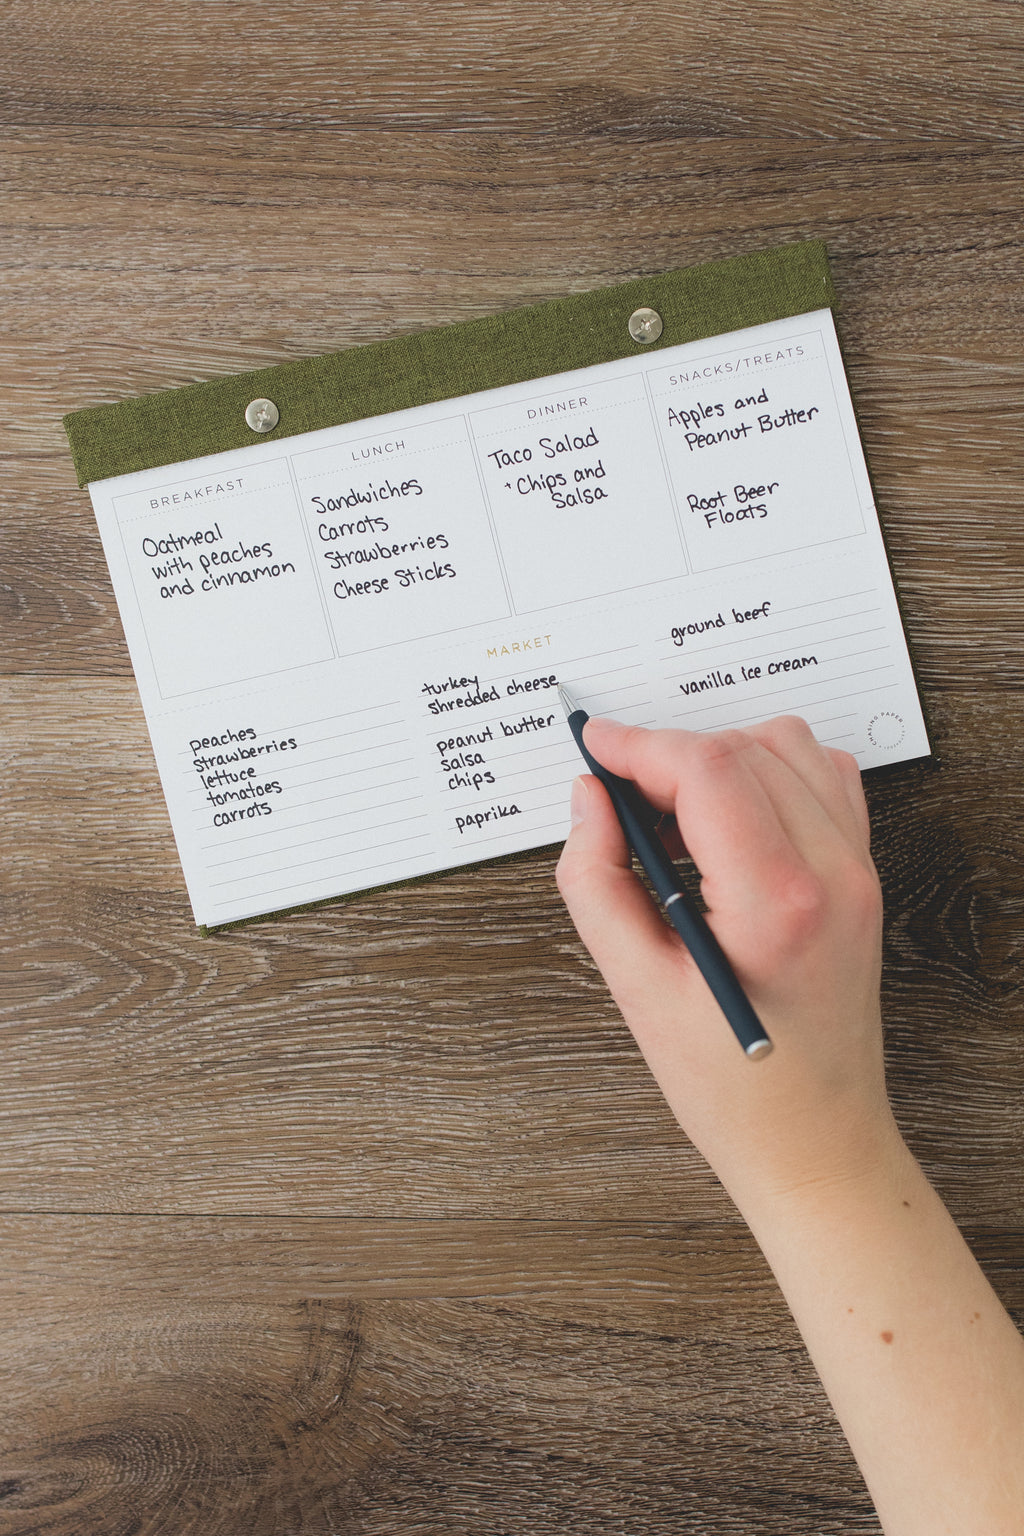 BREAKFAST
Oatmeal
with peaches
and cinnamon
LUNCH
Sandwiches
Carrots
Strawberries
Cheese Sticks
DINNER
Taco Salad
+ Chips and
Salsa
SNACKS/TREATS
Apples and
Peanut Butter
Root Beer
Floats
MARKET
peaches
strawberries
lettuce
tomatoes
carrots
turkey
shredded cheese
peanut butter
salsa
chips
paprika
ground beef
vanilla ice cream
CHASING PAPER